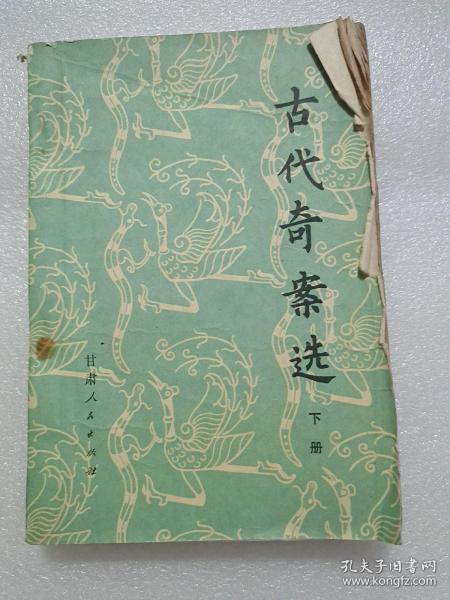 古代奇案选
下册
甘肃人民出版社
孔夫子旧书网
www.kongfz.com